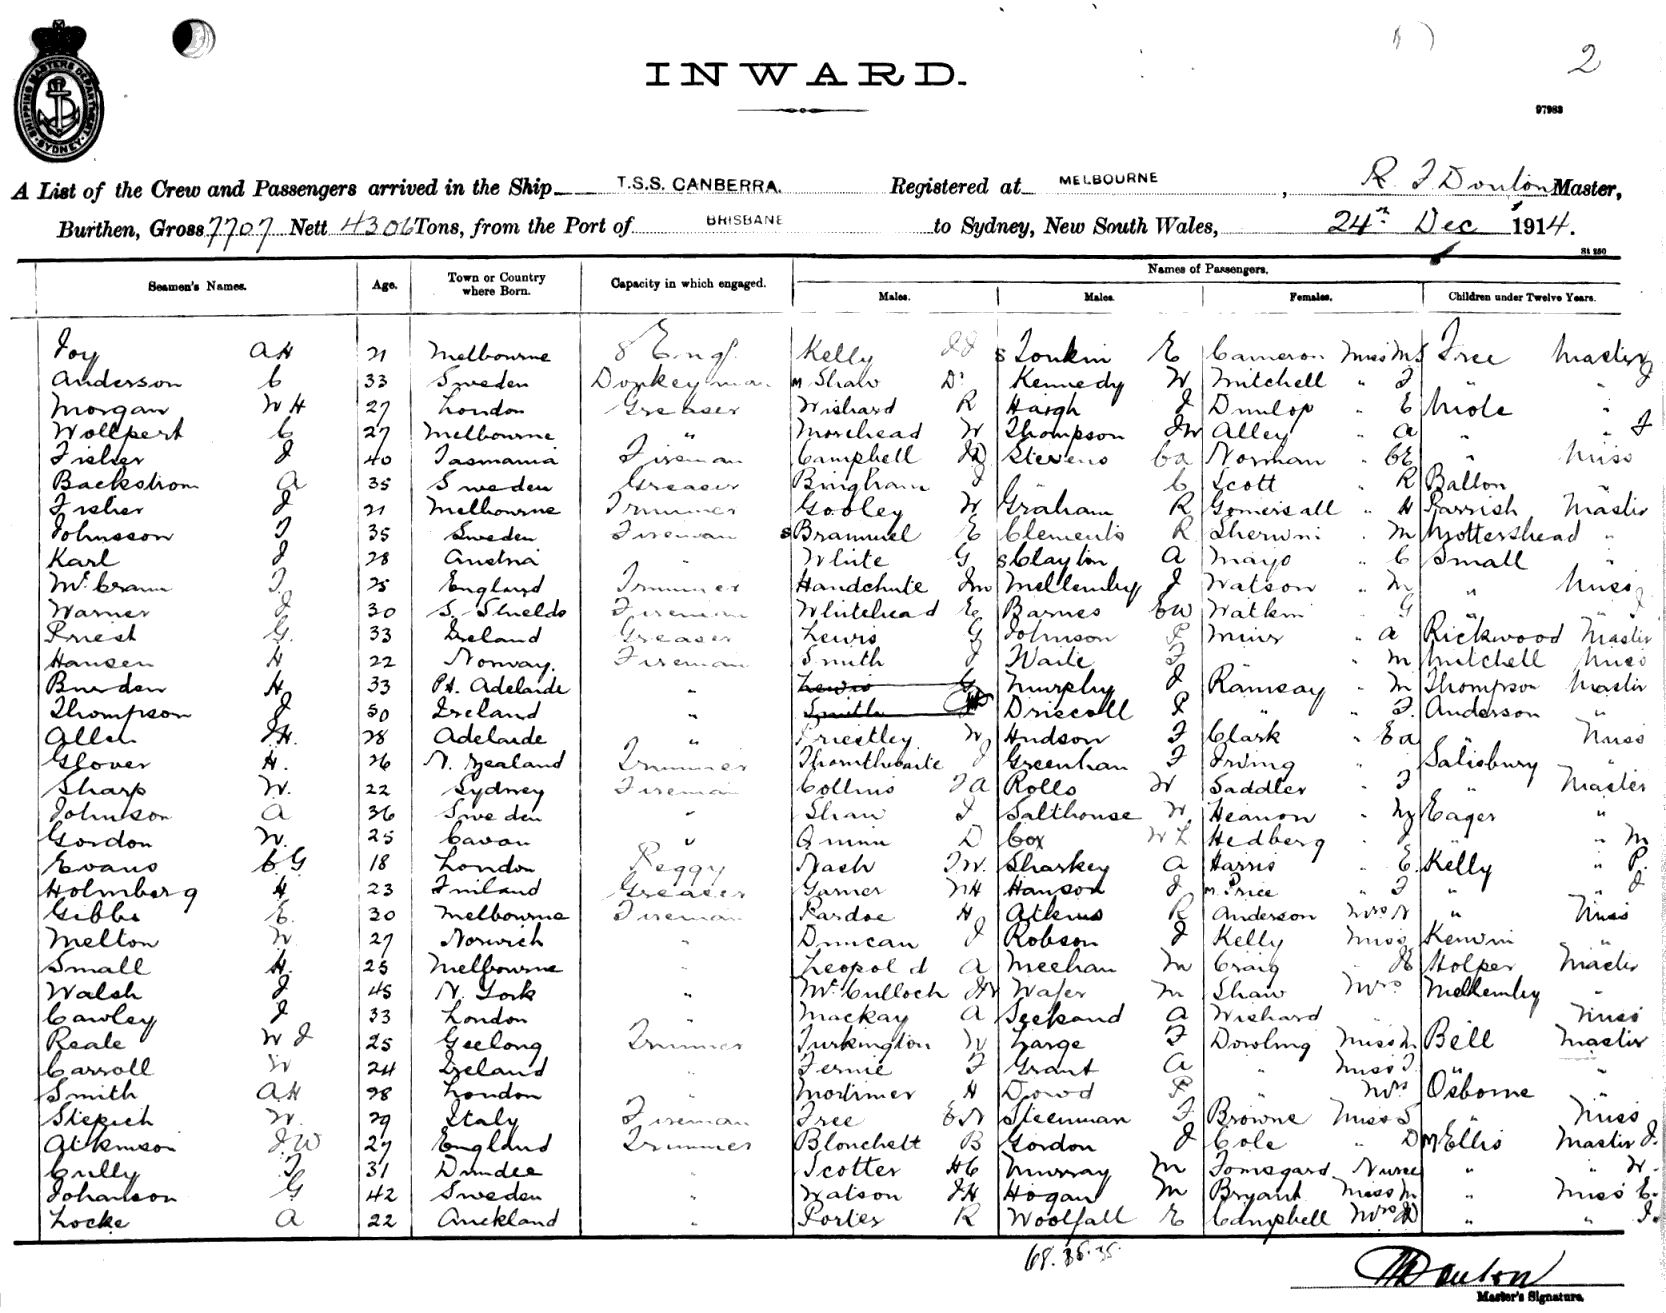 SHIPPING MASTERS DEPARTMENT SYDNEY
2
INWARD.
97983
A List of the Crew and Passengers arrived in the Ship T.S.S. CANBERRA. Registered at MELBOURNE, R. J Donton Master,
Burthen, Gross 7707 Nett 4306 Tons, from the Port of BRISBANE to Sydney, New South Wales, 24th Dec 1914.
St 250
Names of Passengers.
Seamen's Names. Age. Town or Country where Born. Capacity in which engaged. Males. Males. Females. Children under Twelve Years.
Joy A H 21 Melbourne 8 Eng. Kelly S Tonkin E Cameron Miss M S Free Master
Anderson C 33 Sweden Donkeyman M Shaw D Kennedy W Mitchell " J " "
Morgan W H 27 London Greaser Wishard R Haigh J Dunlop " E Mole "
Wollpert C 27 Melbourne " Morehead W Thompson J W Alley " A " " J
Fisher J 40 Tasmania Fireman Campbell Stevens C A Norman " C E " Miss
Backstrom A 35 Sweden Greaser Bingham J " C Scott " R Balton "
Fisher J 21 Melbourne Trimmer Gooley W Graham R Gomersall " H Parrish Master
Johnsson J 35 Sweden Fireman S Bramwel E Clements R Sherwin " M Mottershead "
Karl J 28 Austria " White G S Clayton A Mayo " C Small "
McCrann J. 25 England Trimmer Handchute J M Mellemby J Watson " M " Miss
Warner J 30 S. Shields Fireman Whitehead E Barnes C W Watkin " G " "
Priest G. 33 Ireland Greaser Lewis G Johnson P Muir " A Rickwood Master
Hansen H 22 Norway. Fireman Smith J Waite F " " M Mitchell Miss
Burden H. 33 Pt. Adelaide " Lewis G Murphy J Ramsay " M Thompson Master
Thompson J 50 Ireland " Smith Driscoll P " " J. Anderson "
Allen J.H. 28 Adelaide " Priestley W Hudson F Clark " E A " Miss
Glover H. 26 N. Zealand Trimmer Thornthwaite J Greenhan F Irving " Salisbury "
Sharp W. 22 Sydney Fireman Collins J A Rolls W Saddler " J " Master
Johnson A 36 Sweden " Shaw J Salthouse W. Heanon " Eager "
Gordon W. 25 Cavan " Quinn D Cox W L Hedberg " J " " M
Evans C G 18 London Peggy Nash J W. Sharkey A Harris " E. Kelly " P.
Holmberg H 23 Finland Greaser Garner W H Hanson J M Price " J " " J
Gibbs E. 30 Melbourne Fireman Pardoe H Atkins R Anderson Mrs N " Miss
Melton W 27 Norwich " Duncan J Robson J Kelly Miss Kerwin "
Small H. 25 Melbourne " Leopold A Meehan M Craig " Holper Master
Walsh J 45 N. York " McCulloch J W Wafer M Shaw Mrs Mellemby "
Cawley J 33 London " Mackay A Seekand A Wishard " " Miss
Reale W J 25 Geelong Trimmer Turkington W Large F Dowling Miss M Bell Master
Carroll W 24 Ireland " Fernie F Grant A " Miss J. " "
Smith A H 28 London " Mortimer H Dowd P " Mrs Osborne "
Stepich W. 29 Italy Fireman Free E N Steenman F Browne Miss S " Miss
Atkinson J W 27 England Trimmer Blonchett B Gordon J Cole " D M Ellis Master J.
Cully J 31 Dundee " Scotter H C Murray M Tomsgard Nurse " " W.
Johanson G 42 Sweden " Watson J H Hogan M Bryant Miss M " Miss E.
Locke A 22 Auckland " Porter R Woolfall E Campbell Mrs " " J.
68. 35. 35.
Donton
Master's Signature.